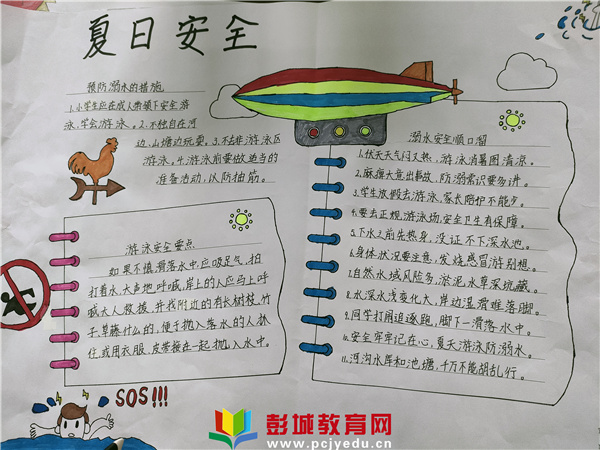 夏日安全
预防溺水的措施
1.小学生应在成人带领下安全游
泳,学会游泳。2.不独自在河
边、山塘边玩耍。3.不去非游泳区
游泳。4.游泳前要做适当的
准备活动,以防抽筋。
游泳安全要点
如果不慎滑落水中,应吸足气,拍
打着水,大声地呼喊,岸上的人应马上呼
喊大人救援,并找附近的有长树枝,竹
子,草藤什么的,便于抛入落水的人抓
住,或用衣服、皮带接在一起抛入水中。
SOS!!!
溺水安全顺口溜
1.伏天天气闷又热,游泳消暑图清凉。
2.麻痹大意出事故,防溺常识要多讲。
3.学生放假去游泳,家长陪护不能少。
4.要去正规游泳场,安全卫生有保障。
5.下水之前先热身,没证不下深水池。
6.身体状况要注意,发烧感冒游别想。
7.自然水域风险多,淤泥水草深坑藏。
8.水深水浅变化大,岸边湿滑难落脚。
9.同学打闹追逐跑,脚下一滑落水中。
10.安全牢牢记在心,夏天游泳防溺水。
11.河沟水库和池塘,千万不能胡乱行。
彭城教育网
www.pcjyedu.cn